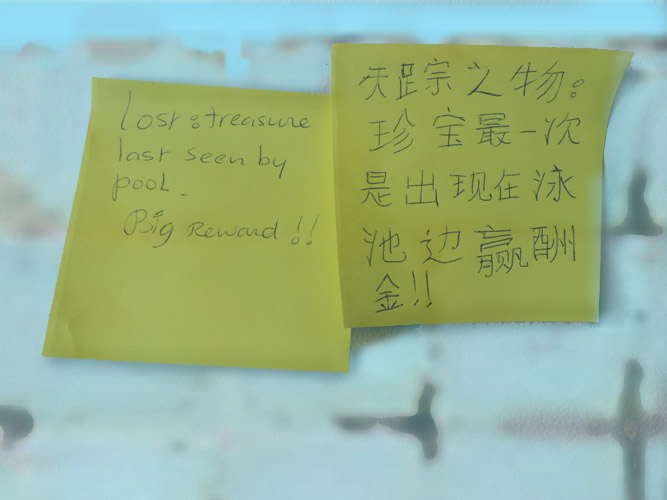 lost : treasure
last seen by
pool.
Big Reward !!
失踪之物：
珍宝最一次
是出现在泳
池边赢酬
金!!